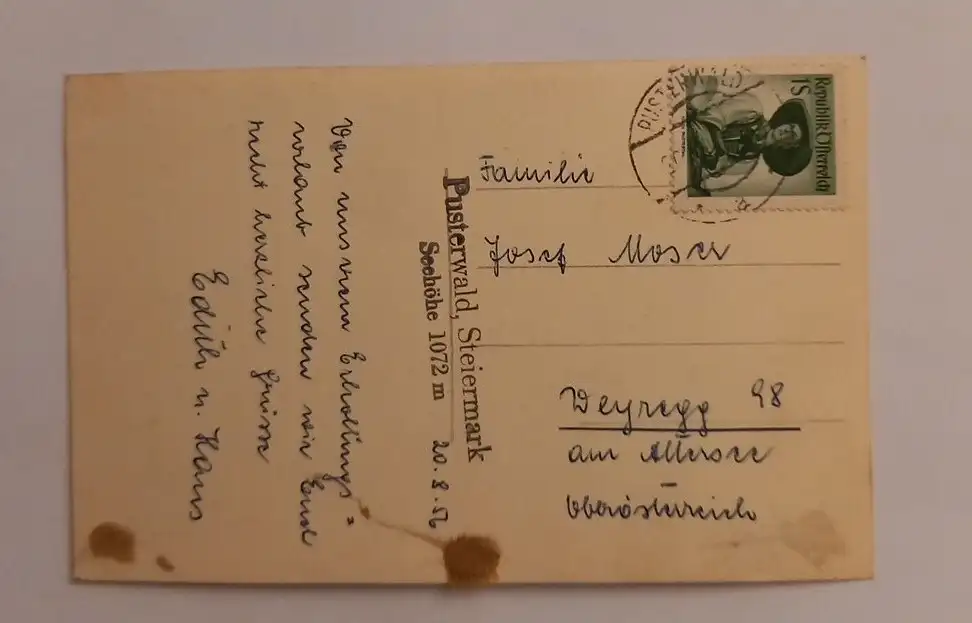 Pusterwald, Steiermark
Seehöhe 1072 m 20.8.56
Von unserem Erhollungs=
urlaub senden wir Euch
recht herzliche Grüsse
Edith u. Hans
PUSTERWALD
Republik Österreich
1S
Familie
Josef Moser
Weyregg 98
am Attersee
Oberösterreich